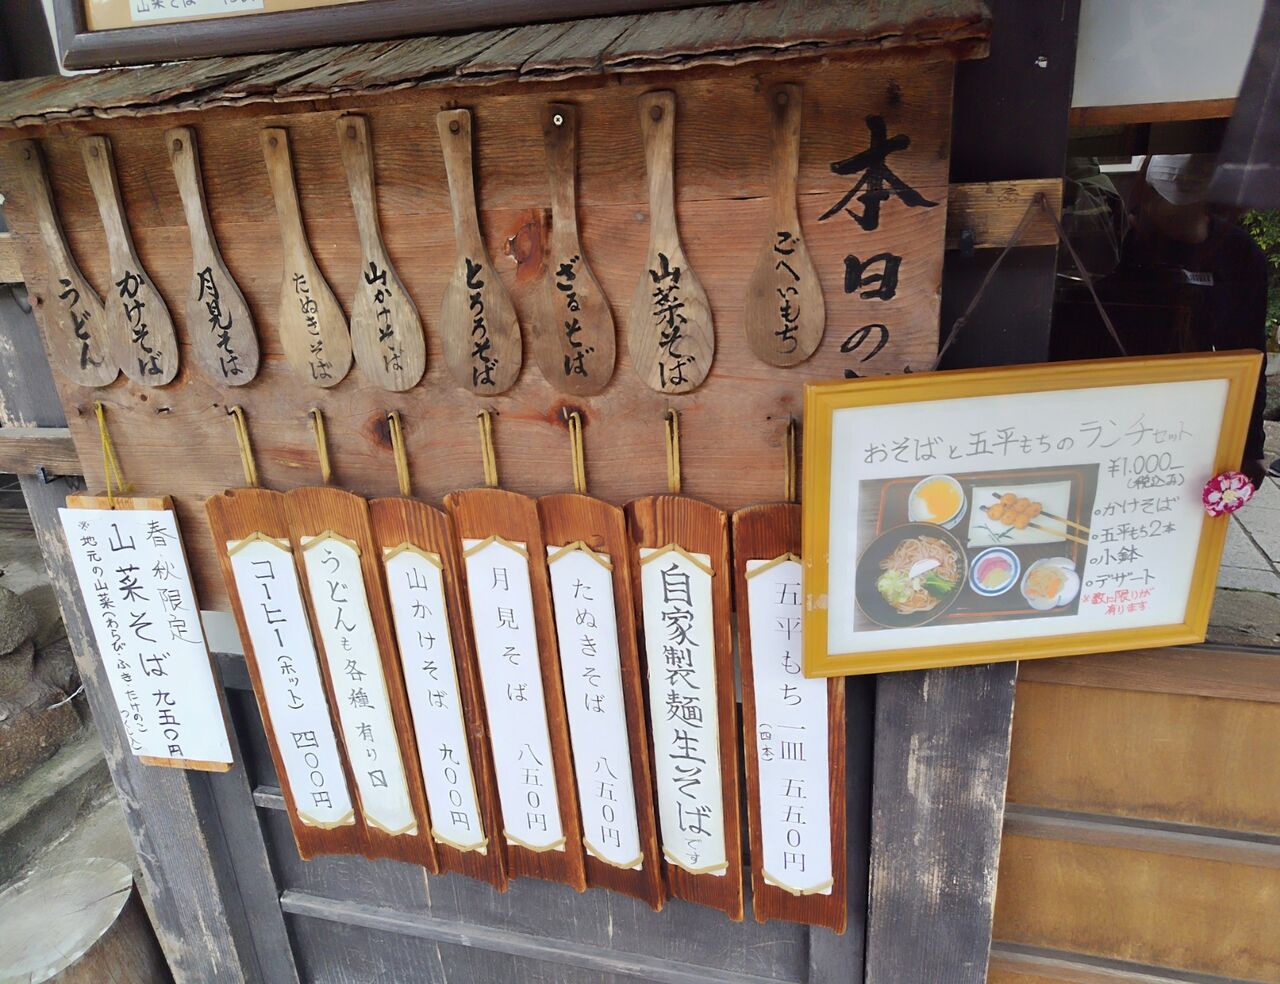 山菜そば
本日の
ごへいもち
山菜そば
ざるそば
とろろそば
山かけそば
たぬきそば
月見そば
かけそば
うどん
おそばと五平もちのランチセット
¥1.000-
(税込み)
◦かけそば
◦五平もち2本
◦小鉢
◦デザート
※数に限りが
有ります
五平もち 一皿 五五〇円
(四本)
自家製麺生そばです
たぬきそば 八五〇円
月見そば 八五〇円
山かけそば 九〇〇円
うどんも各種有り〼
コーヒー(ホット) 四〇〇円
春秋限定
山菜そば 九五〇円
※地元の山菜・わらび・ふき・たけのこ